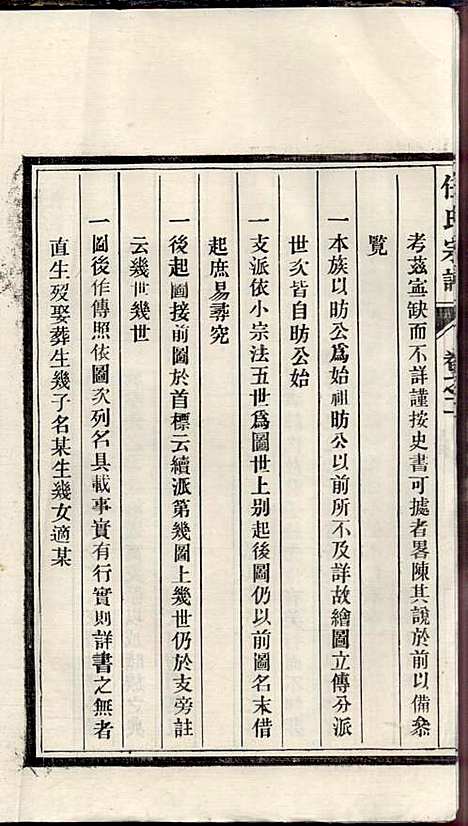 任氏宗譜
卷之二
考茲寧缺而不詳謹按史書可據者畧陳其說於前以備叅
覽
一本族以昉公爲始祖昉公以前所不及詳故繪圖立傳分派
世次皆自昉公始
一支派依小宗法五世爲圖世上别起後圖仍以前圖名末借
起庶易尋究
一後起圖接前圖於首標云續派第幾圖上幾世仍於支旁註
云幾世幾世
一圖後作傳照依圖次列名具載事實有行實則詳書之無者
直生歿娶葬生幾子名某生幾女適某